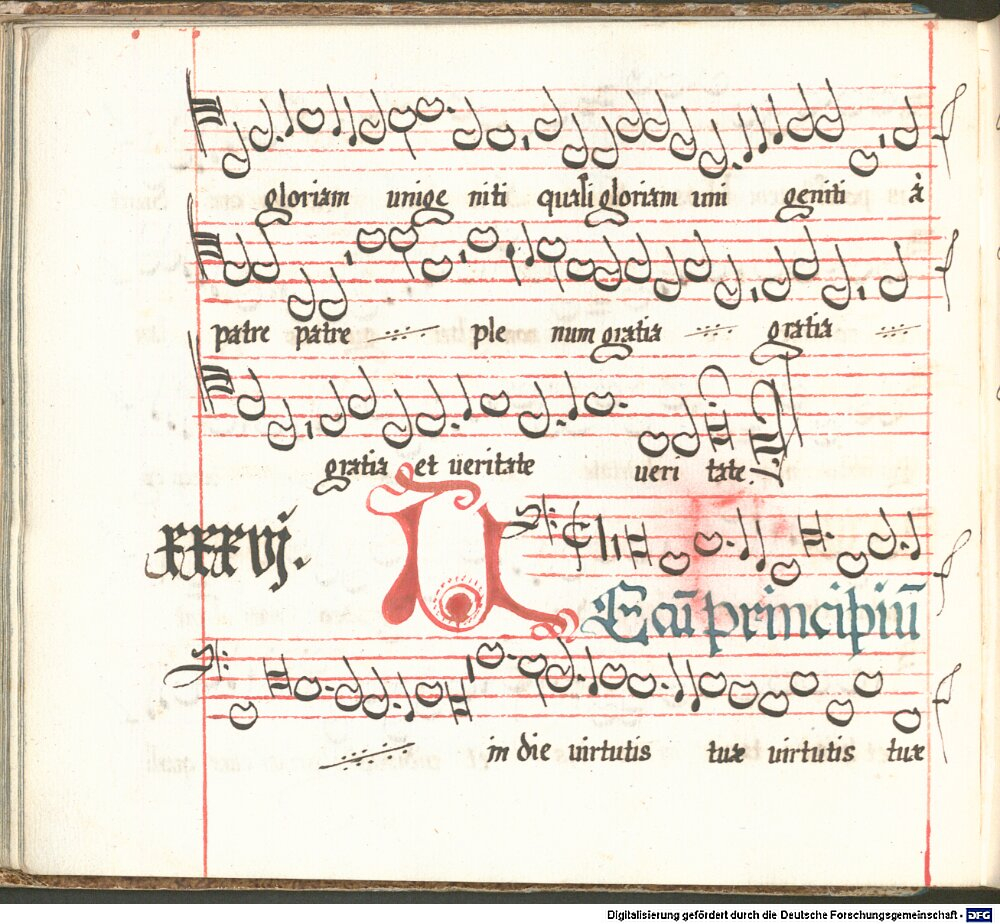 gloriam unige niti quasi gloriam uni geniti à
patre patre ple num gratia gratia
gratia et veritate veri tate.
xxxvj.
TEcū principiū
in die virtutis tuæ virtutis tuæ
Digitalisierung gefördert durch die Deutsche Forschungsgemeinschaft - DFG